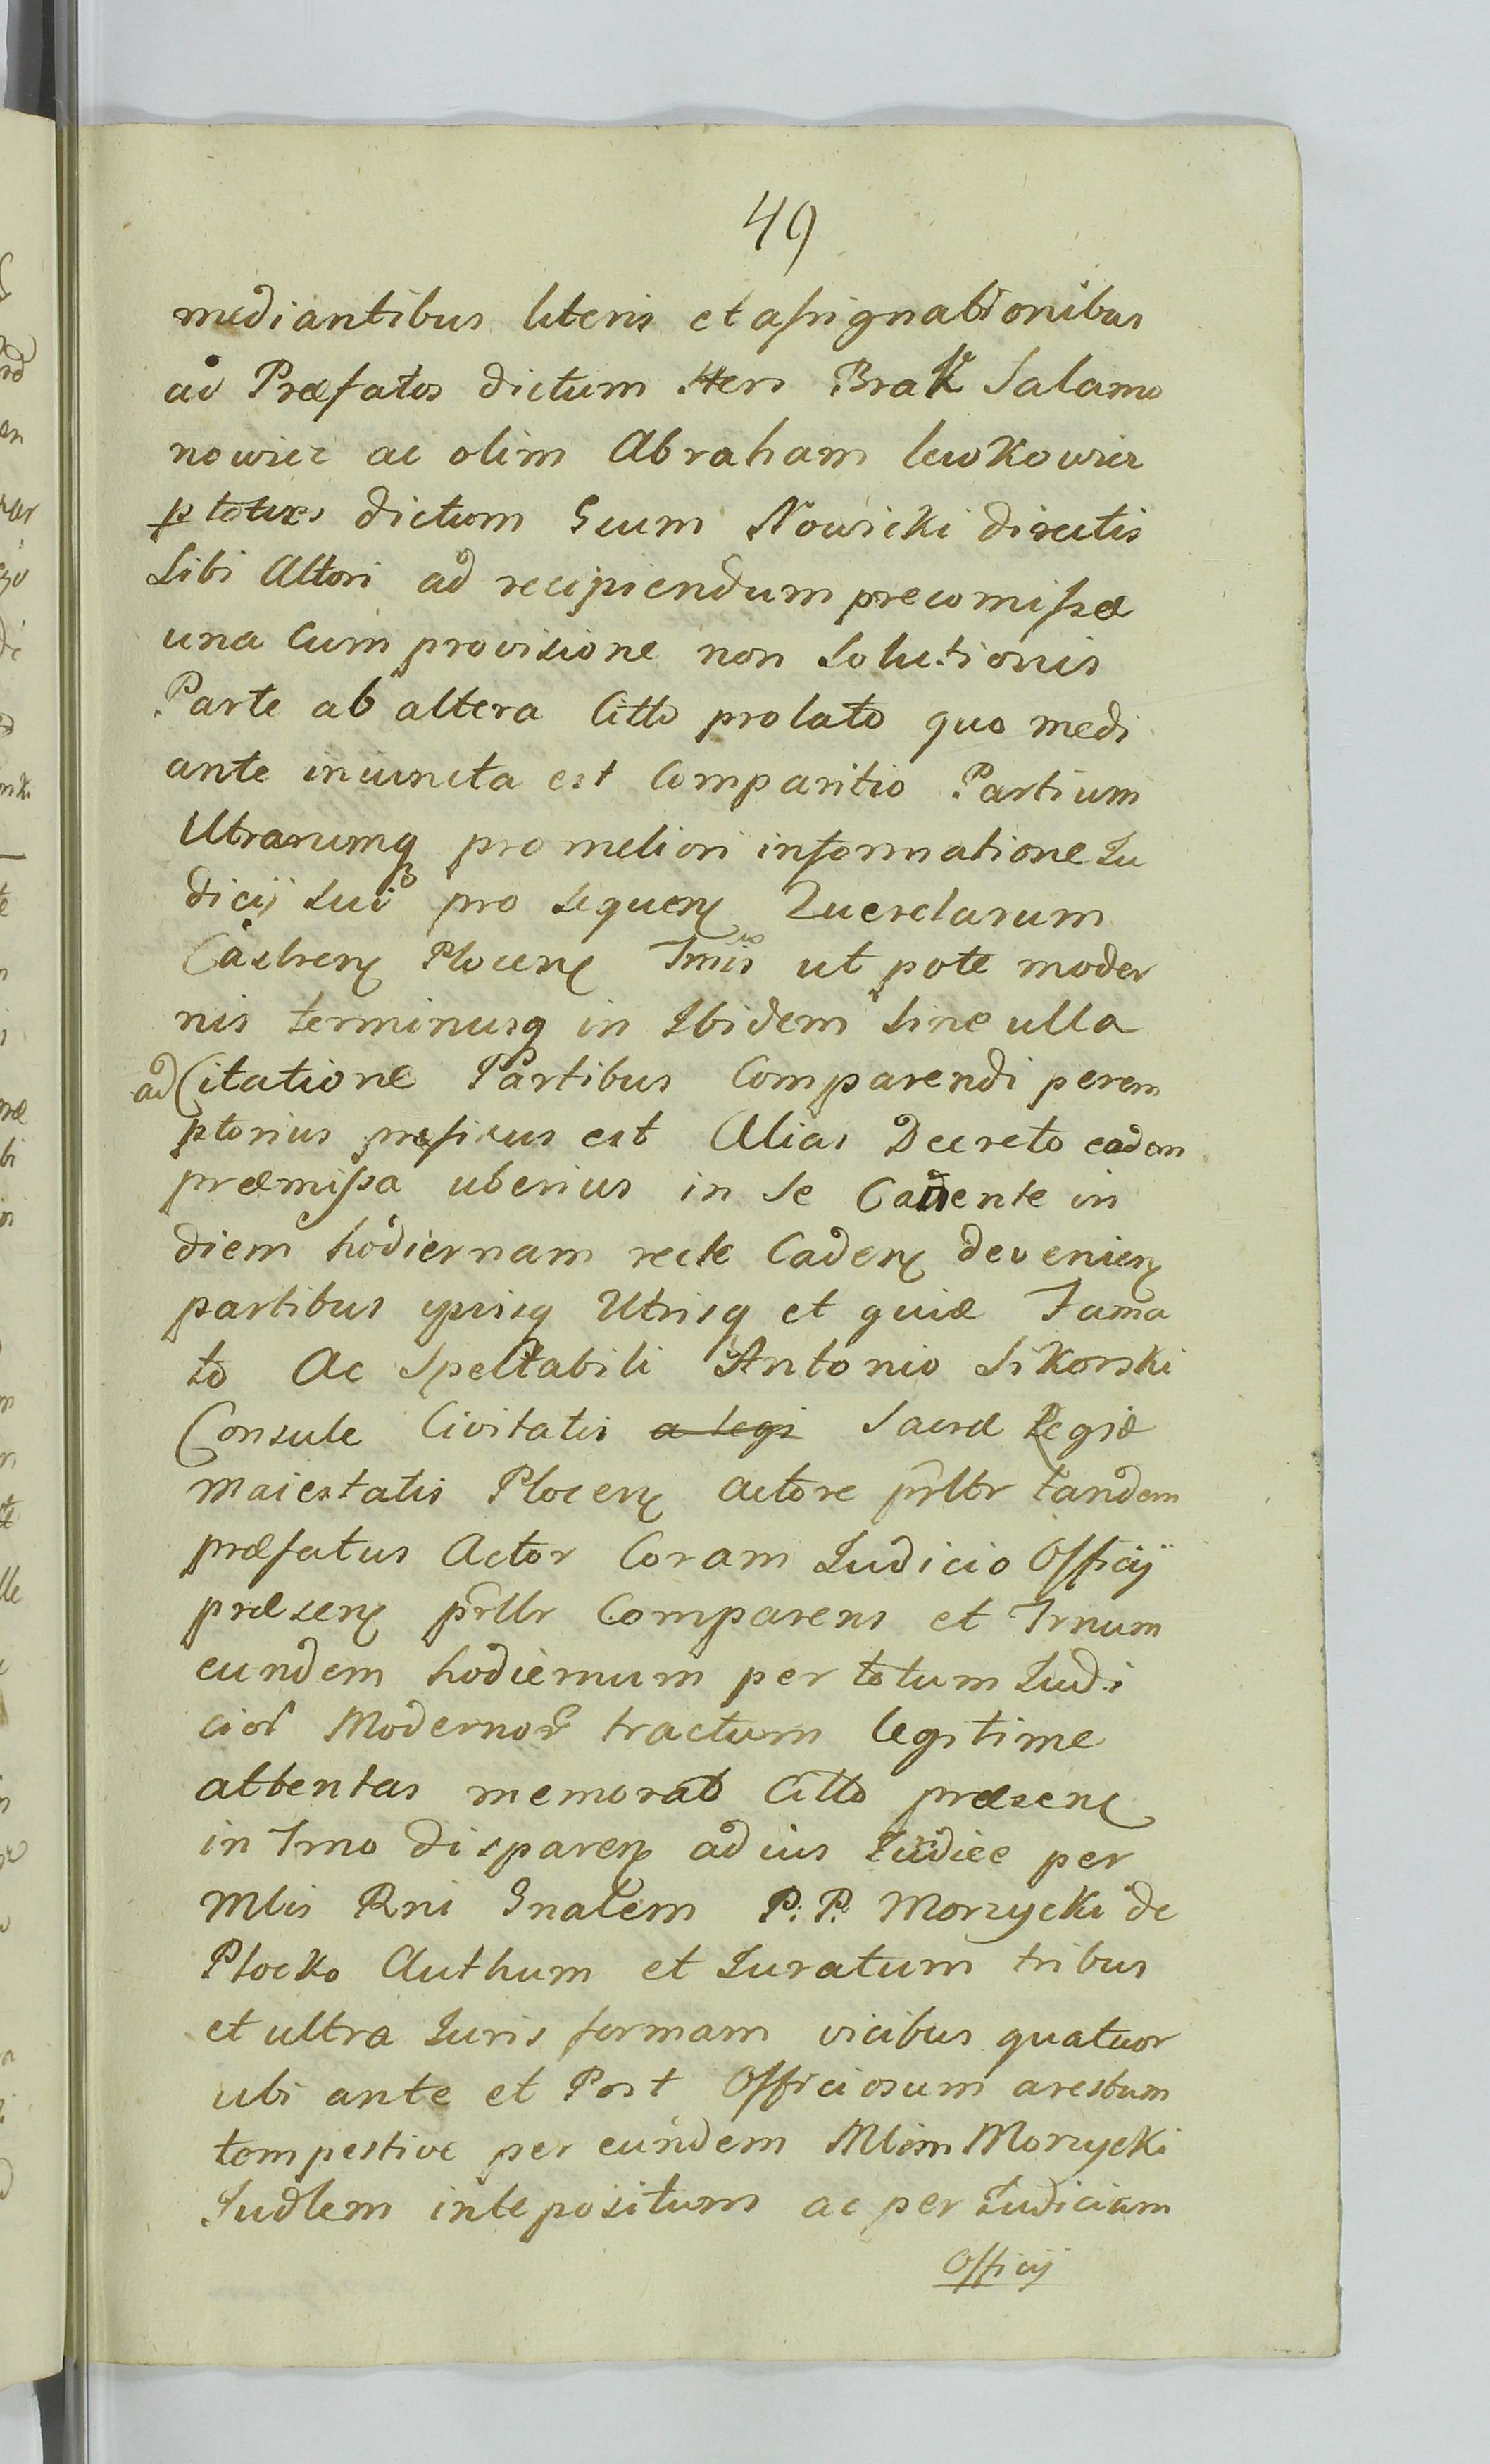 49
mediantibus literis et assignationibus
ad Præfatos dictum Hers Brak Salamo
nowicz ac olim Abraham lewkowicz
dictum Seum Nowicki directis
Sibi Actori ad recipiendum precomissæ
una Cum provisione non Solutionis
Parte ab altera Citto prolato quo medi
ante iniuncta est Comparitio Partium
Utrarumq pro meliori informatione Iu
dicij Sui pro sequen Querelarum
Castren Plocen Tmis ut pote moder
nis terminusq in Ibidem Sine ulla
adCitatione Partibus Comparendi perem
ptorius prefixus est Alias Decreto eadem
præmissa uberius in Se Canente in
diem hodiernam recte Caden devenien
partibus ipsisq Utrisq et quia Fama
to Ac Spectabili Antonio Sikorski
Consule Civitatis a regi Sacræ Regiæ
maiestatis Plocen actore prltr tandem
præfatus Actor Coram Iudicio Officij
præsen prltr Comparens et Trnum
eundem hodiernum per totum Iudi
cior Modernor tractum legitime
attentas memorato Citto præsen
in Trno disparen ad ius Iudice per
Mlis Rni Gnalem P: P: Morzycki de
Plocko Authum et Iuratum tribus
et ultra Iuris formam vicibus quatuor
ubi ante et Post Officiosum arestum
tempestive per eundem Mlem Morzycki
Iudlem intepositum ac per Iudicium
Officij